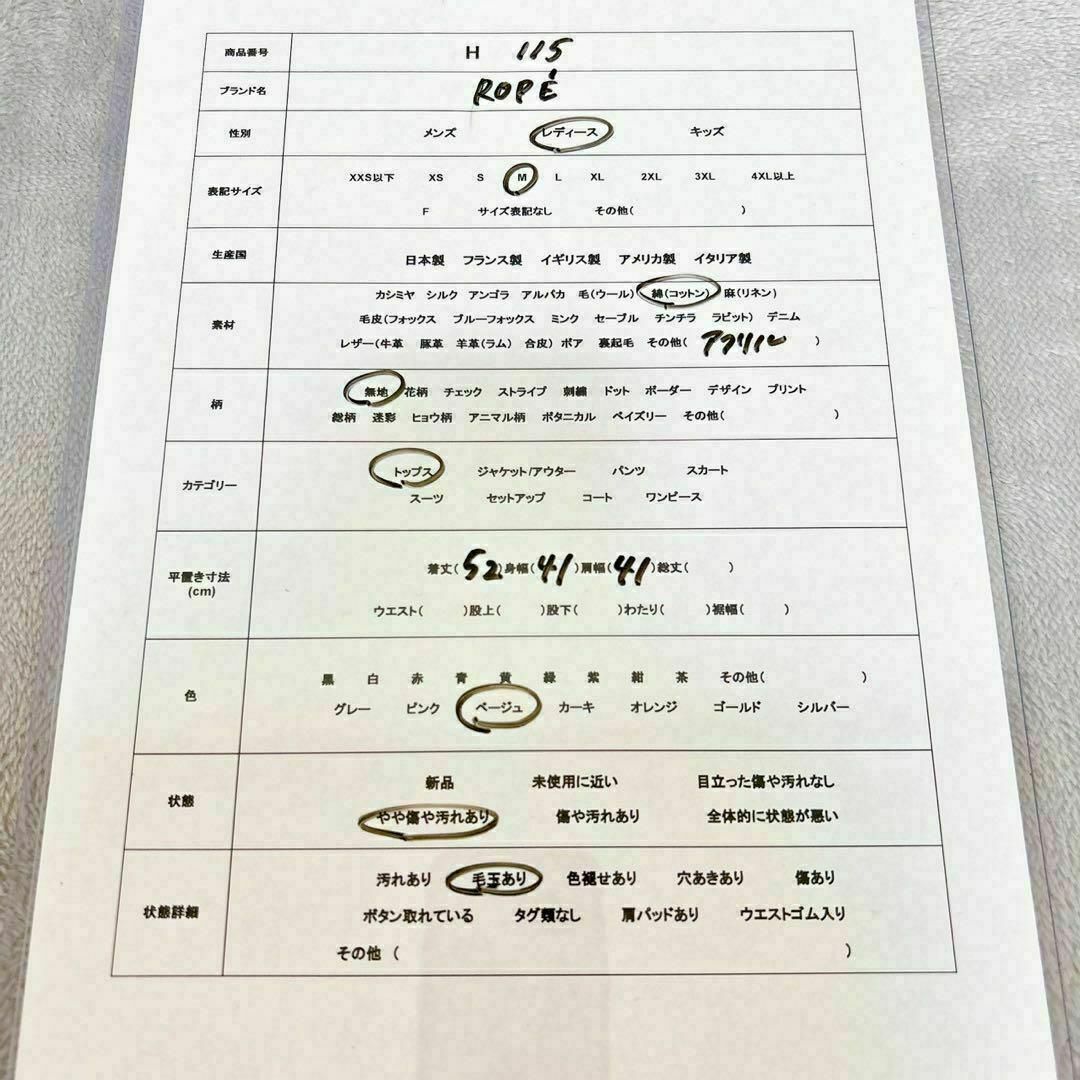 商品番号 H 115
ブランド名 ROPÉ
性別 メンズ レディース キッズ
表記サイズ XXS以下 XS S M L XL 2XL 3XL 4XL以上
F サイズ表記なし その他( )
生産国 日本製 フランス製 イギリス製 アメリカ製 イタリア製
素材 カシミヤ シルク アンゴラ アルパカ 毛(ウール) 綿(コットン) 麻(リネン)
毛皮(フォックス ブルーフォックス ミンク セーブル チンチラ ラビット) デニム
レザー(牛革 豚革 羊革(ラム) 合皮) ボア 裏起毛 その他( アクリル )
柄 無地 花柄 チェック ストライプ 刺繍 ドット ボーダー デザイン プリント
総柄 迷彩 ヒョウ柄 アニマル柄 ボタニカル ペイズリー その他( )
カテゴリー トップス ジャケット/アウター パンツ スカート
スーツ セットアップ コート ワンピース
平置き寸法 着丈( 52 )身幅( 41 )肩幅( 41 )総丈( )
(cm) ウエスト( )股上( )股下( )わたり( )裾幅( )
色 黒 白 赤 青 黄 緑 紫 紺 茶 その他( )
グレー ピンク ベージュ カーキ オレンジ ゴールド シルバー
状態 新品 未使用に近い 目立った傷や汚れなし
やや傷や汚れあり 傷や汚れあり 全体的に状態が悪い
状態詳細 汚れあり 毛玉あり 色褪せあり 穴あきあり 傷あり
ボタン取れている タグ類なし 肩パッドあり ウエストゴム入り
その他 ( )